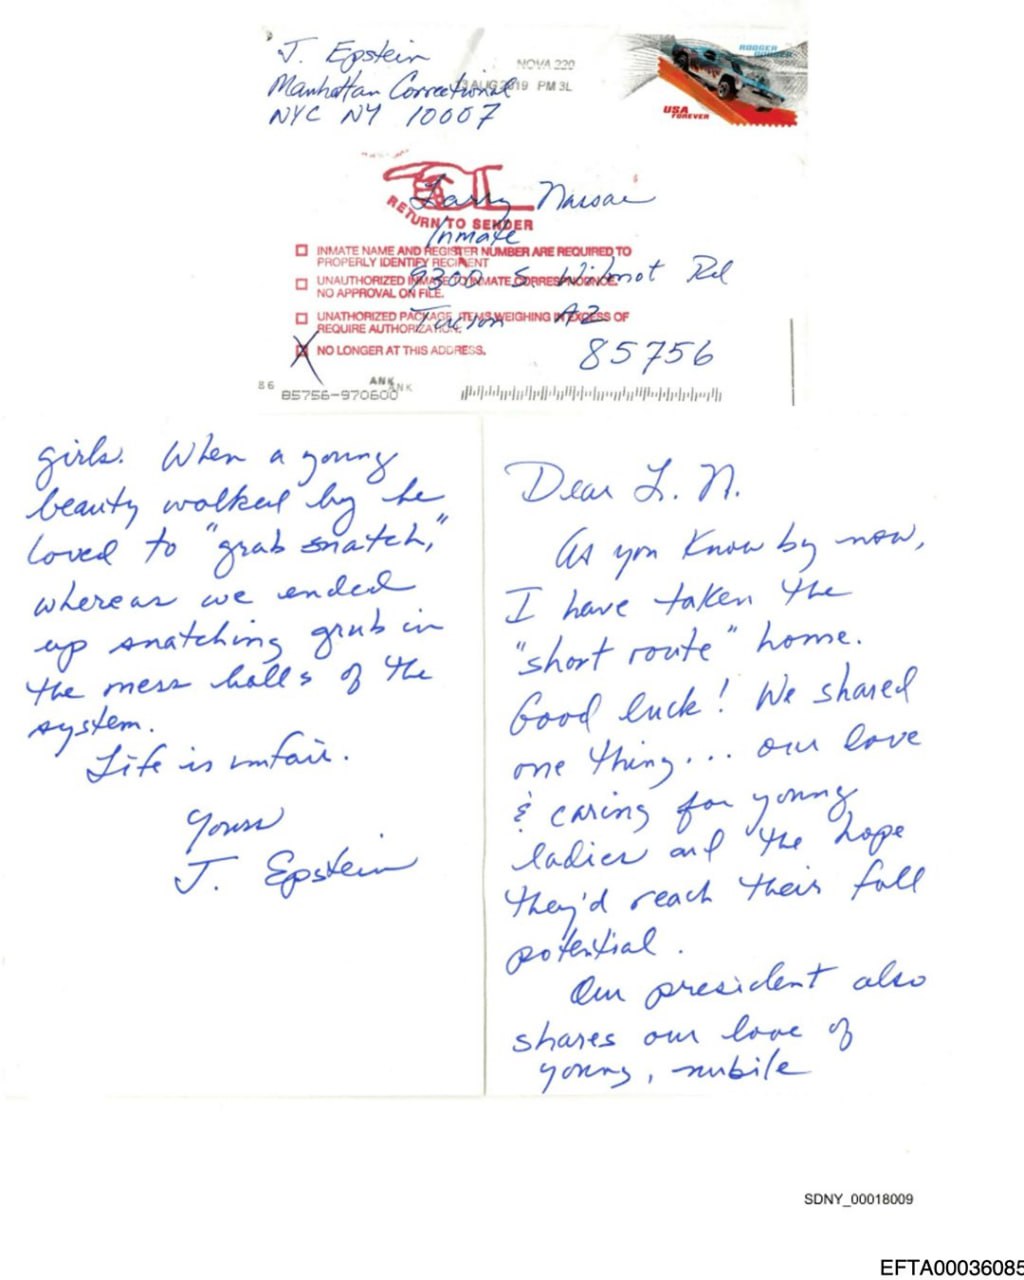 J. Epstein
Manhattan Correctional
NYC NY 10007
NOVA 220
13 AUG 2019 PM 3L
RODGER DODGER
USA
FOREVER
Larry Nassar
RETURN TO SENDER
Inmate
INMATE NAME AND REGISTER NUMBER ARE REQUIRED TO
PROPERLY IDENTIFY RECIPIENT
9300 S. Wilmot Rd
UNAUTHORIZED INMATE TO INMATE CORRESPONDENCE.
NO APPROVAL ON FILE.
Tucson AZ
UNATHORIZED PACKAGE, ITEMS WEIGHING IN EXCESS OF
REQUIRE AUTHORIZATION.
X NO LONGER AT THIS ADDRESS.
85756
86
ANK
ANK
85756-970600
Dear L. N.
As you know by now,
I have taken the
"short route" home.
Good luck! We shared
one thing... our love
& caring for young
ladies and the hope
they'd reach their full
potential.
Our president also
shares our love of
young, nubile
girls. When a young
beauty walked by he
loved to "grab snatch,"
whereas we ended
up snatching grub in
the mess halls of the
system.
Life is unfair.
Yours
J. Epstein
SDNY_00018009
EFTA00036085